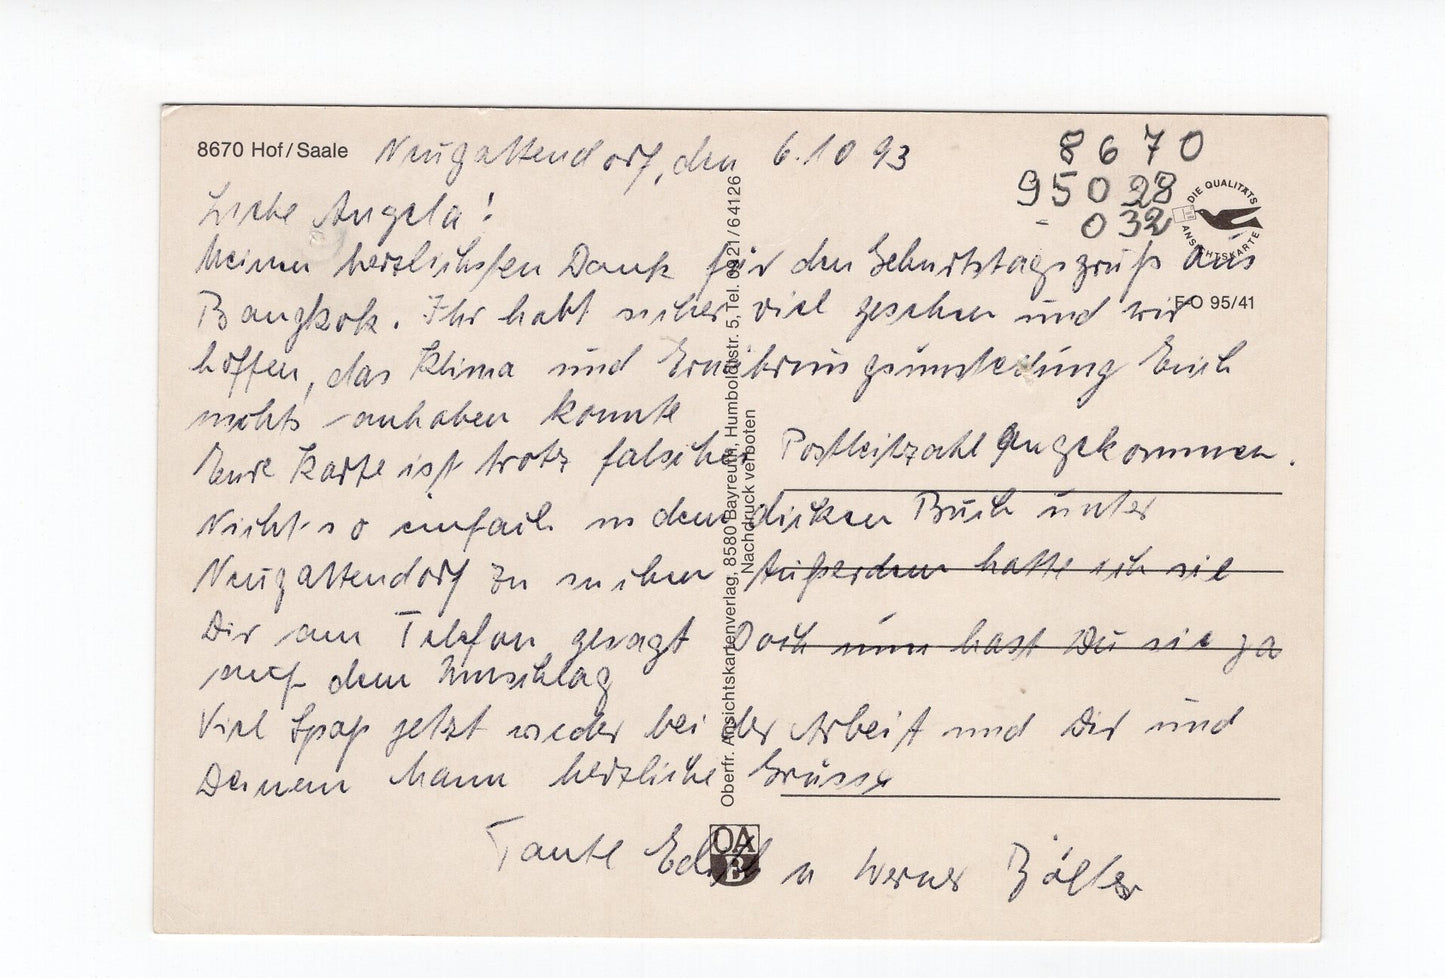 8670 Hof/Saale Neugattendorf, den 6.10 93
8670
95028
- 032
DIE QUALITÄTS
ANSICHTSKARTE
FO 95/41
Liebe Angela!
Meinen herzlichsten Dank für den Geburtstagsgruß aus
Bangkok. Ihr habt sicher viel gesehen und wir
hoffen, das Klima und Ernährungsumstellung Euch
nichts anhaben konnte
Eure Karte ist trotz falscher Postleitzahl angekommen.
Nicht so einfach in dem dicken Buch unter
Neugattendorf zu suchen Außerdem hatte ich sie
Dir am Telefon gesagt Doch nun hast Du sie ja
auf dem Umschlag
Viel Spaß jetzt wieder bei der Arbeit und Dir und
Deinem Mann herzliche Grüsse
Tante Edith u Werner
Oberfr. Ansichtskartenverlag, 8580 Bayreuth, Humboldtstr. 5, Tel. 0921/64126
Nachdruck verboten
OA
B